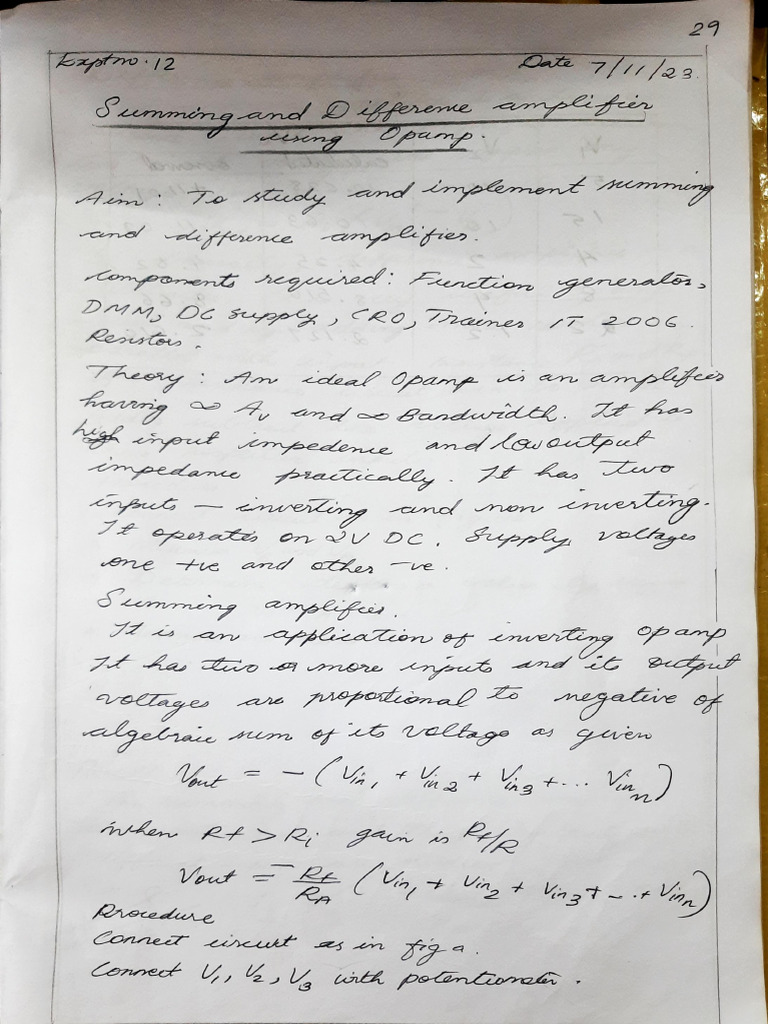 29
Exptno. 12 Date 7/11/23.
Summing and Difference amplifier
using Opamp.
Aim : To study and implement summing
and difference amplifier.
Components required : Function generator,
DMM, DC supply, CRO, Trainer IT 2006.
Resistors.
Theory : An ideal Opamp is an amplifier
having ∞ Av and ∞ Bandwidth. It has
high input impedence and low output
impedance practically. It has two
inputs — inverting and non inverting.
It operates on 2V DC. Supply voltages
one +ve and other -ve.
Summing amplifier.
It is an application of inverting opamp
It has two or more inputs and its output
voltages are proportional to negative of
algebraic sum of its voltage as given
Vout = - (Vin1 + Vin2 + Vin3 + ... Vinn)
When Rf > Ri gain is Rf/R
Vout = -Rf/RA (Vin1 + Vin2 + Vin3 + -- . + Vinn)
Procedure
Connect circuit as in fig a.
Connect V1, V2, V3 with potentiometer.